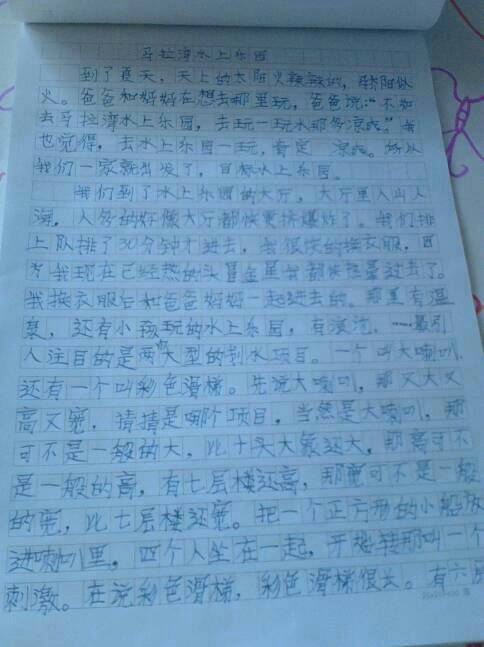 玛拉湾水上乐园
到了夏天，天上的太阳火辣辣的，骄阳似
火。爸爸和好好在想去那里玩，爸爸说：“不如
去马拉湾水上乐园，去玩一玩水那多凉爽。”我
也觉得，去水上乐园一玩，肯定 凉爽。所以
我们一家就出发了，目标水上乐园。
我们到了水上乐园的大厅，大厅里人山人
海，人多的好像大厅都快要挤爆炸了。我们排
上队排了30分钟才进去，我很快的换衣服，因
为我现在已经热的头冒金星我都快热晕过去了。
我换衣服后和爸爸好好一起进去的。那里有温
泉，还有小孩玩的水上乐园，有漂流，……最引
人注目的是两个大型的刺水项目。一个叫大喇叭，
还有一个叫彩色滑梯。先说大喇叭，那又大又
高又宽，请猜是哪个项目，当然是大喇叭，那
可不是一般的大，比十头大象还大，那高可不
是一般的高，有七层楼还高，那宽可不是一般
的宽，比七层楼还宽。把一个正方形的小船放
进喇叭里，四个人坐在一起，开始转那叫一个
刺激。在说彩色滑梯，彩色滑梯很长。有六